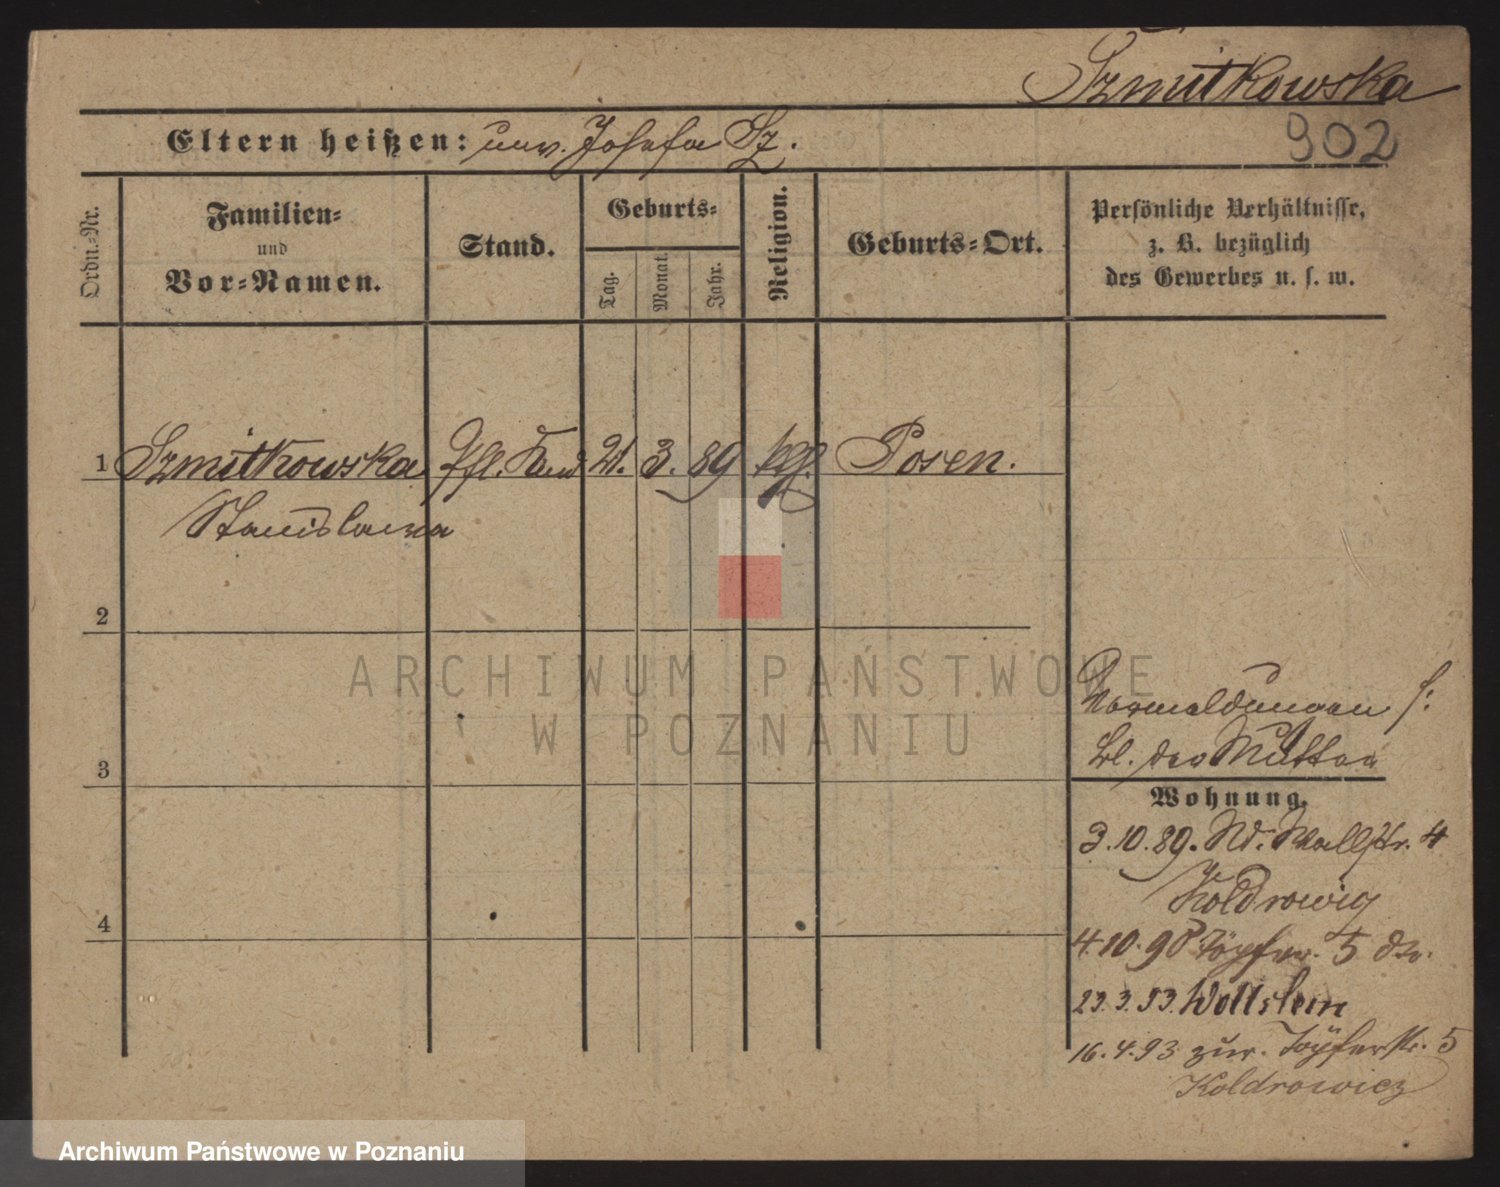 Szmitkowska
Eltern heißen: unv. Josefa Sz.
902
Ordn.-Nr.
Familien-
und
Vor-Namen.
Stand.
Geburts-
Tag.
Monat.
Jahr.
Religion.
Geburts-Ort.
Persönliche Verhältnisse,
z. B. bezüglich
des Gewerbes u. s. w.
1 Szmitkowska Pfl. Kind 21. 3. 89 kath. Posen.
Stanislawa
2
3
4
Vormeldungen s:
Bl. der Mutter
Wohnung.
3.10.89. Wallstr. 4
Koldrowig
4.10.90 Töpferstr. 5
23.3.93. Wollstein
16.4.93 zur. Töpferstr. 5
Koldrowicz
ARCHIWUM PAŃSTWOWE
W POZNANIU
Archiwum Państwowe w Poznaniu